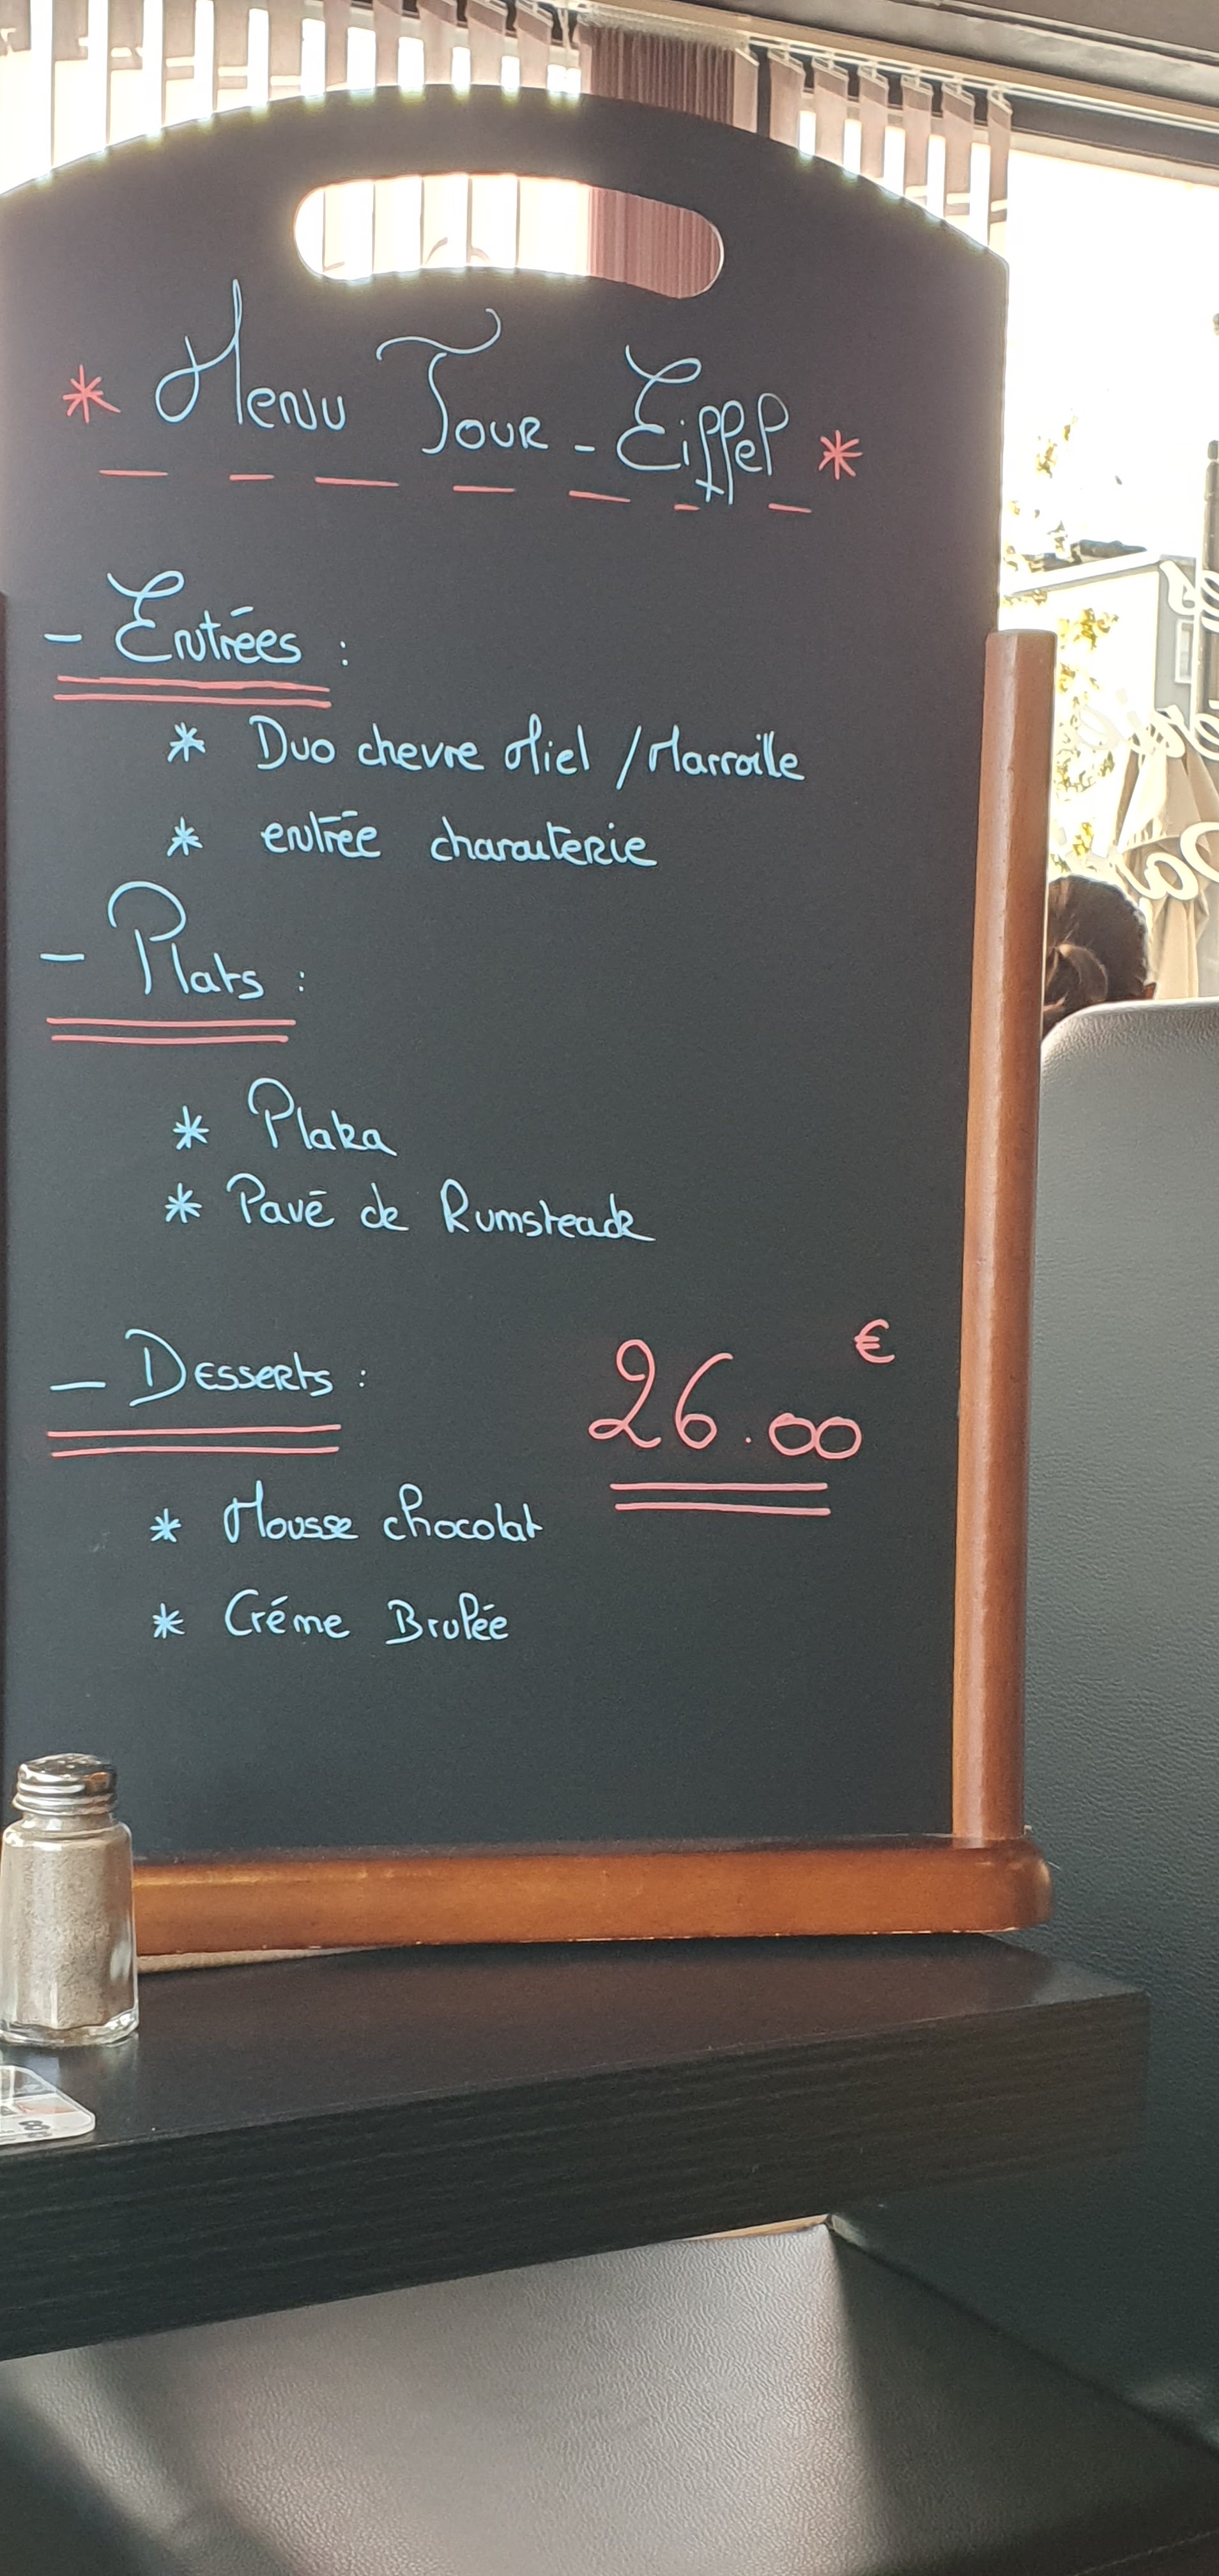 * Menu Tour - Eiffel *
- Entrées :
* Duo chevre Miel / Marroille
* entrée charcuterie
- Plats :
* Plaka
* Pavé de Rumsteack
- Desserts :
26.00 €
* Mousse chocolat
* Créme Brulée